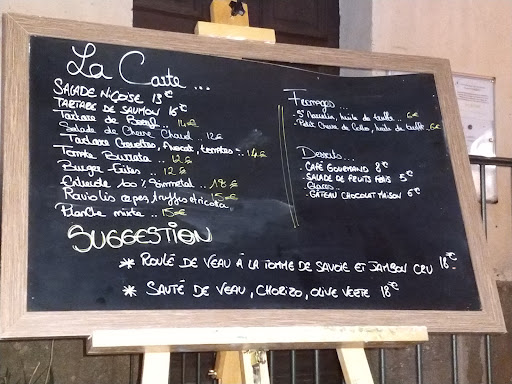 La Carte ...
SALADE NIÇOISE 13€
TARTARE DE SAUMON 16€
Tartare de Boeuf... 14€
Salade de Chèvre Chaud.. 12€
Tartare Crevettes, Avocat, tomates .. 14€
Tomate Burrata .. 12€
Burger Frites .. 12€
Entrecôte 18€
Raviolis cèpes, truffes et ricotta 15€
Planche mixte .. 15€
Fromages ...
St Marcelin, huile de truffe ... 6€
huile de truffe 6€
Desserts...
. CAFÉ GOURMAND 8€
. SALADE DE FRUITS FRAIS 5€
. Glaces..
. GÂTEAU CHOCOLAT MAISON 6€
SUGGESTION
* ROULÉ DE VEAU À LA TOMME DE SAVOIE ET JAMBON CRU 18€
* SAUTÉ DE VEAU, CHORIZO, OLIVE VERTE 18€